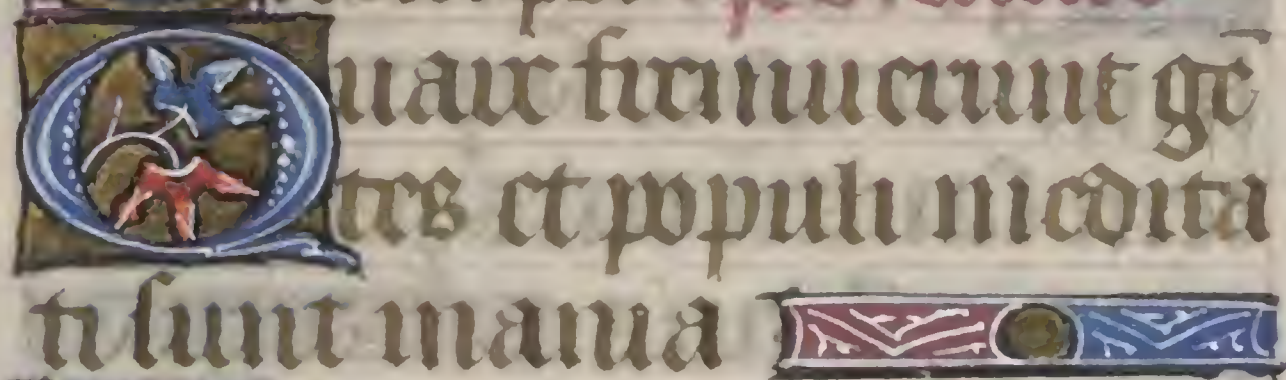 Quare fremuerunt gē
tes et populi medita
ti sunt inania